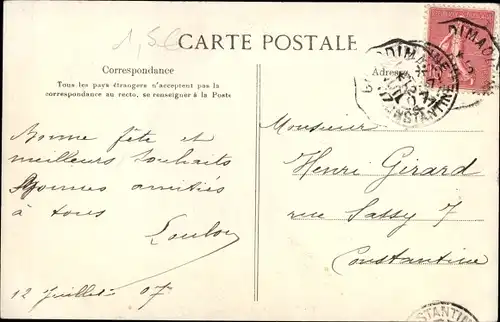 1,50
CARTE POSTALE
Correspondance
Tous les pays étrangers n'acceptent pas la
correspondance au recto, se renseigner à la Poste
Adresse
Monsieur
Henri Girard
rue Sassy 7
Constantine
Bonne fête et
meilleurs souhaits
Bonnes amitiés
à tous
Loulou
12 Juillet 07
CONSTANTINE